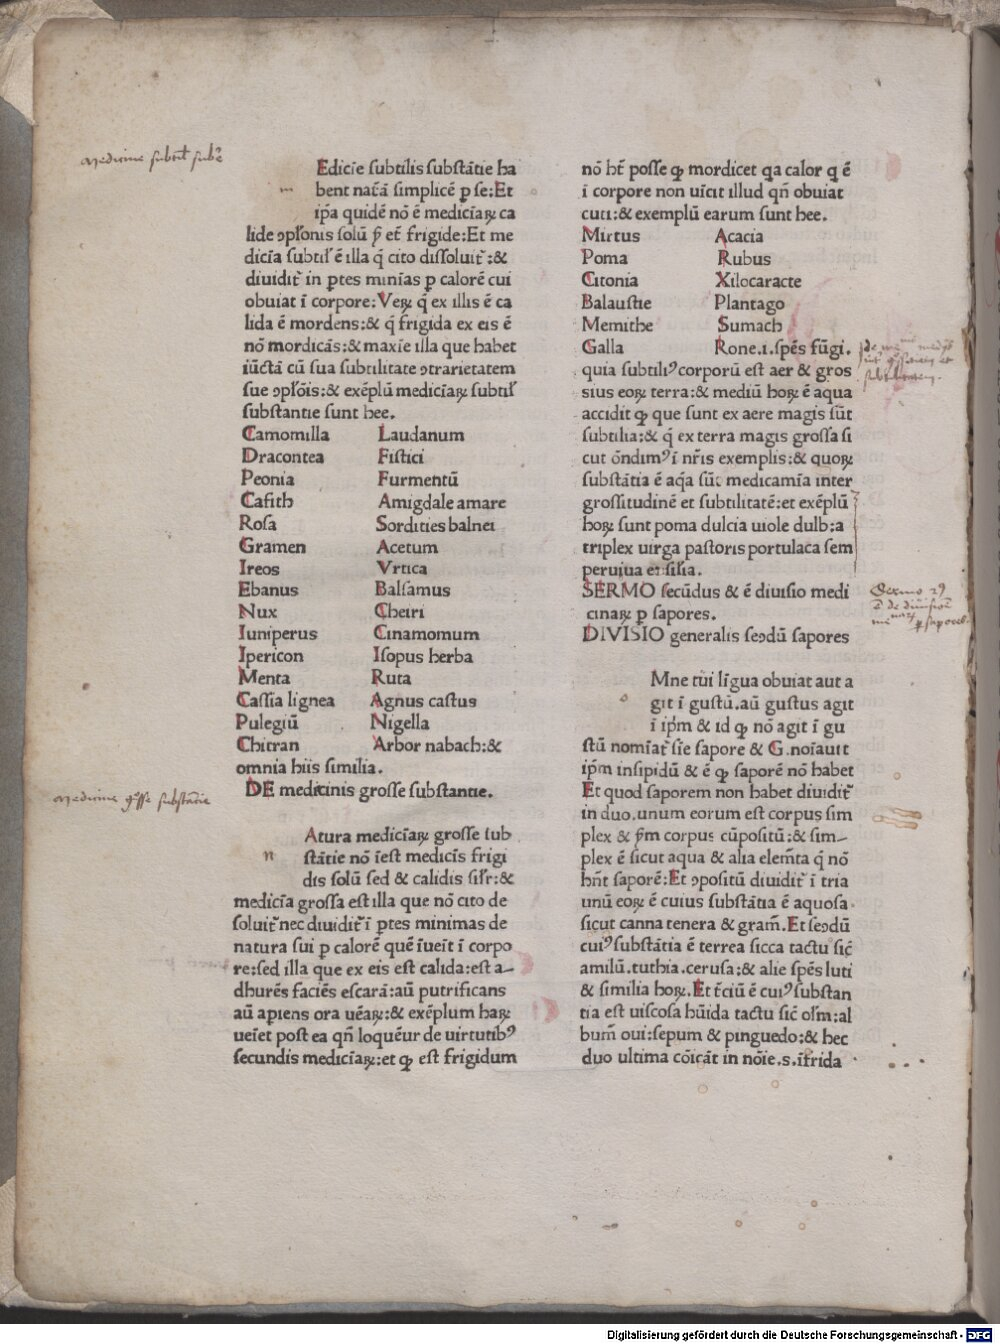 Medicine subtil subẽ
Edicīe subtilis substãtie ha
m bent nat̃ã simplicẽ p se:Et
ip̃a quidẽ nõ ẽ medicīaꝝ ca
lide ↄp̃lonis solũ p̃ et̃ frigide:Et me
dicīa subtil̃ ẽ illa q̃ cito dissoluit̃:&
diuidit̃ in ptes minīas p calorẽ cui
obuiat ī corpore:Veꝝ q̃ ex illis ẽ ca
lida ẽ mordens:& q̃ frigida ex eis ẽ
nõ mordicãs:& maxīe illa que habet
iũctã cũ sua subtilitate ↄtrarietatem
sue ↄp̃lõis:& exẽplũ medicīaꝝ subtil̃
substantie sunt hee.
Camomilla Laudanum
Dracontea Fistici
Peonia Furmentũ
Cafith Amigdale amare
Rosa Sordities balnei
Gramen Acetum
Ireos Vrtica
Ebanus Balsamus
Nux Cheiri
Iuniperus Cinamomum
Ipericon Isopus herba
Menta Ruta
Cassia lignea Agnus castus
Pulegiũ Nigella
Chitran Arbor nabach:&
omnia hiis similia.
DE medicinis grosse substantie.
Medicine grosse substãcie
Atura medicīaꝝ grosse sub
n stãtie nõ īest medicīs frigi
dis solũ sed & calidis sil̃r:&
medicīa grossa est illa que nõ cito de
soluit̃ nec diuidit̃ ī ptes minimas de
natura sui p calorẽ quẽ īueīt ī corpo
re:sed illa que ex eis est calida:est a-
dhurẽs faciẽs escarã:aũ putrificans
aũ apiens ora uẽaꝝ:& exẽplum haꝝ
ueīet post ea qñ loquẽur de uirtutibꝰ
secundis medicīaꝝ:et ꝙ est frigidum
nõ ht̃ posse ꝙ mordicet qa calor q ẽ
ī corpore non uīcit illud qñ obuiat
cuti:& exemplũ earum sunt hee.
Mirtus Acacia
Poma Rubus
Citonia Xilocaracte
Balaustie Plantago
Memithe Sumach
Galla Rone.ı.spẽs fũgi.
quia subtiliꝰ corporũ est aer & gros
sius eoꝝ terra:& mediũ hoꝝ ẽ aqua
accidit ꝙ que sunt ex aere magis sũt
subtilia:& q̃ ex terra magis grossa si
cut õndimꝰ ī nr̃is exemplis:& quoꝝ
substãtia ẽ aq̃a sũt medicamīa inter
grossitudinẽ et subtilitatẽ:et exẽplũ
hoꝝ sunt poma dulcia uiole dulb:a
triplex uirga pastoris portulaca sem
peruiua et sil̃ia.
SERMO secũdus & ẽ diuisio medi
cinaꝝ p sapores.
Sermo 2ꝰ
DIVISIO generalis secdũ sapores
Mne tui līgua obuiat aut a
o git ī gustũ.aũ gustus agit
ī ip̃m & id ꝙ nõ agit ī gu
stũ nomīat̃ sīe sapore & G.noīauit
ip̃m insipidũ & ẽ ꝙ saporẽ nõ habet
Et quod saporem non habet diuidit̃
in duo.unum eorum est corpus sim
plex & p̃m corpus cũpositũ:& sim-
plex ẽ sicut aqua & alia elem̃ta q̃ nõ
hñt saporẽ:Et ↄpositũ diuidit̃ ī tria
unũ eoꝝ ẽ cuius substãtia ẽ aquosa
sicut canna tenera & gram̃.Et secdũ
cuiꝰ substãtia ẽ terrea sicca tactu sic̃
amilũ.tuthia.cerusa:& alie spẽs luti
& similia hoꝝ.Et t̃ciũ ẽ cuiꝰ substan
tia est uiscosa hũida tactu sic̃ ol̃m:al
bum̃ oui:sepum & pinguedo:& hec
duo ultima cõicãt in nõīe.s.īfrida
Digitalisierung gefördert durch die Deutsche Forschungsgemeinschaft - DFG